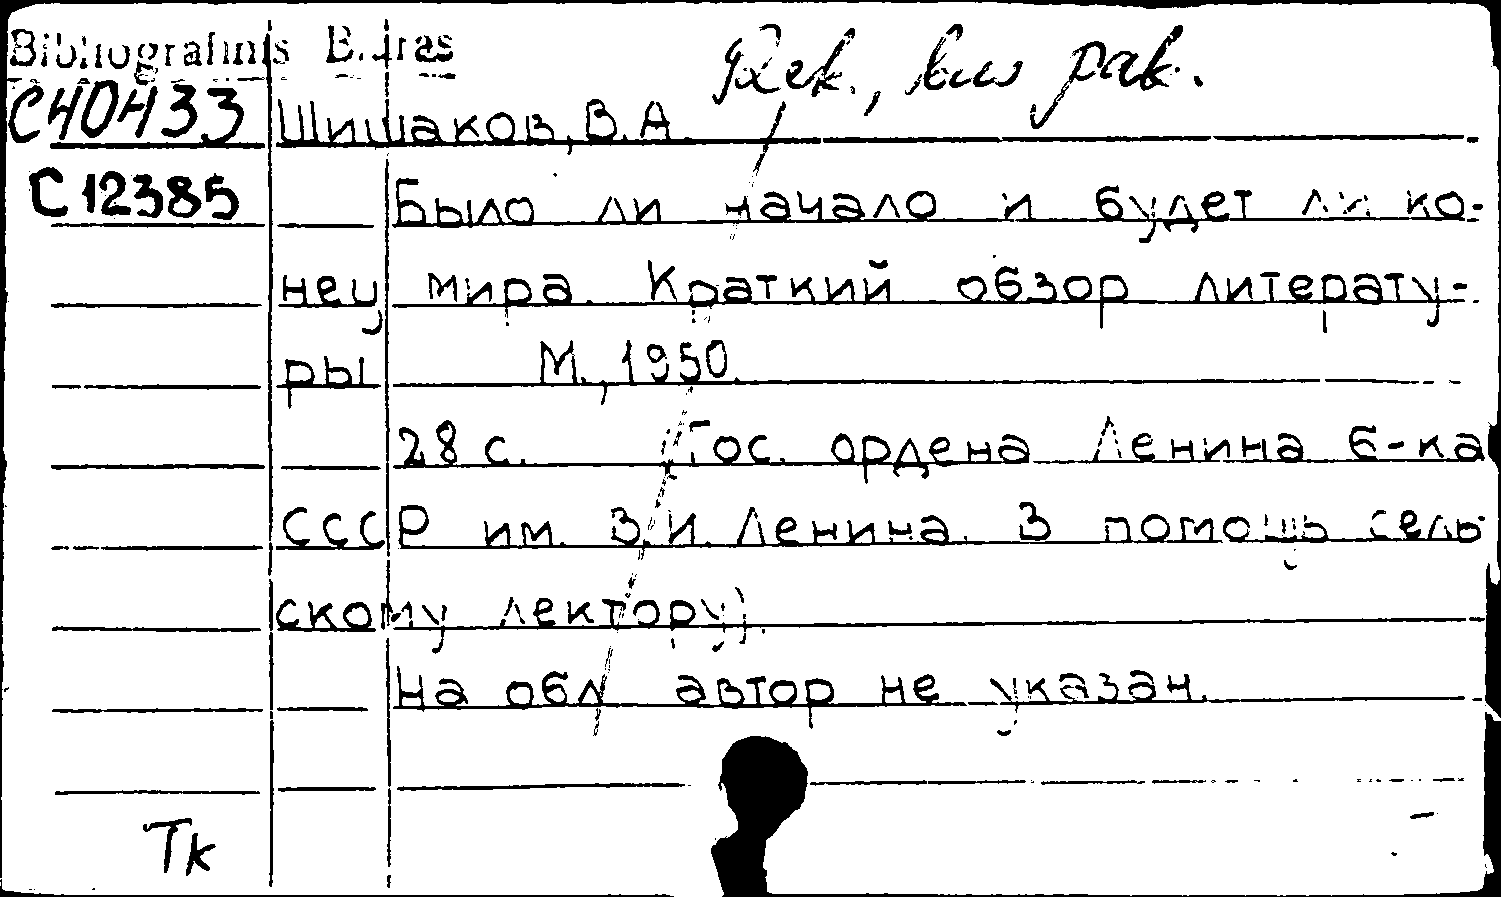 Bibliografinis B
C40433
Шишаков, В. А.
C12385
Было ли начало и будет ли ко-
нец мира. Краткий обзор литерату-
ры М., 1950.
28 с. (Гос. ордена Ленина б-ка
СССР им. В. И. Ленина. В помощь сель-
скому лектору).
На обл автор не указан.
Тк